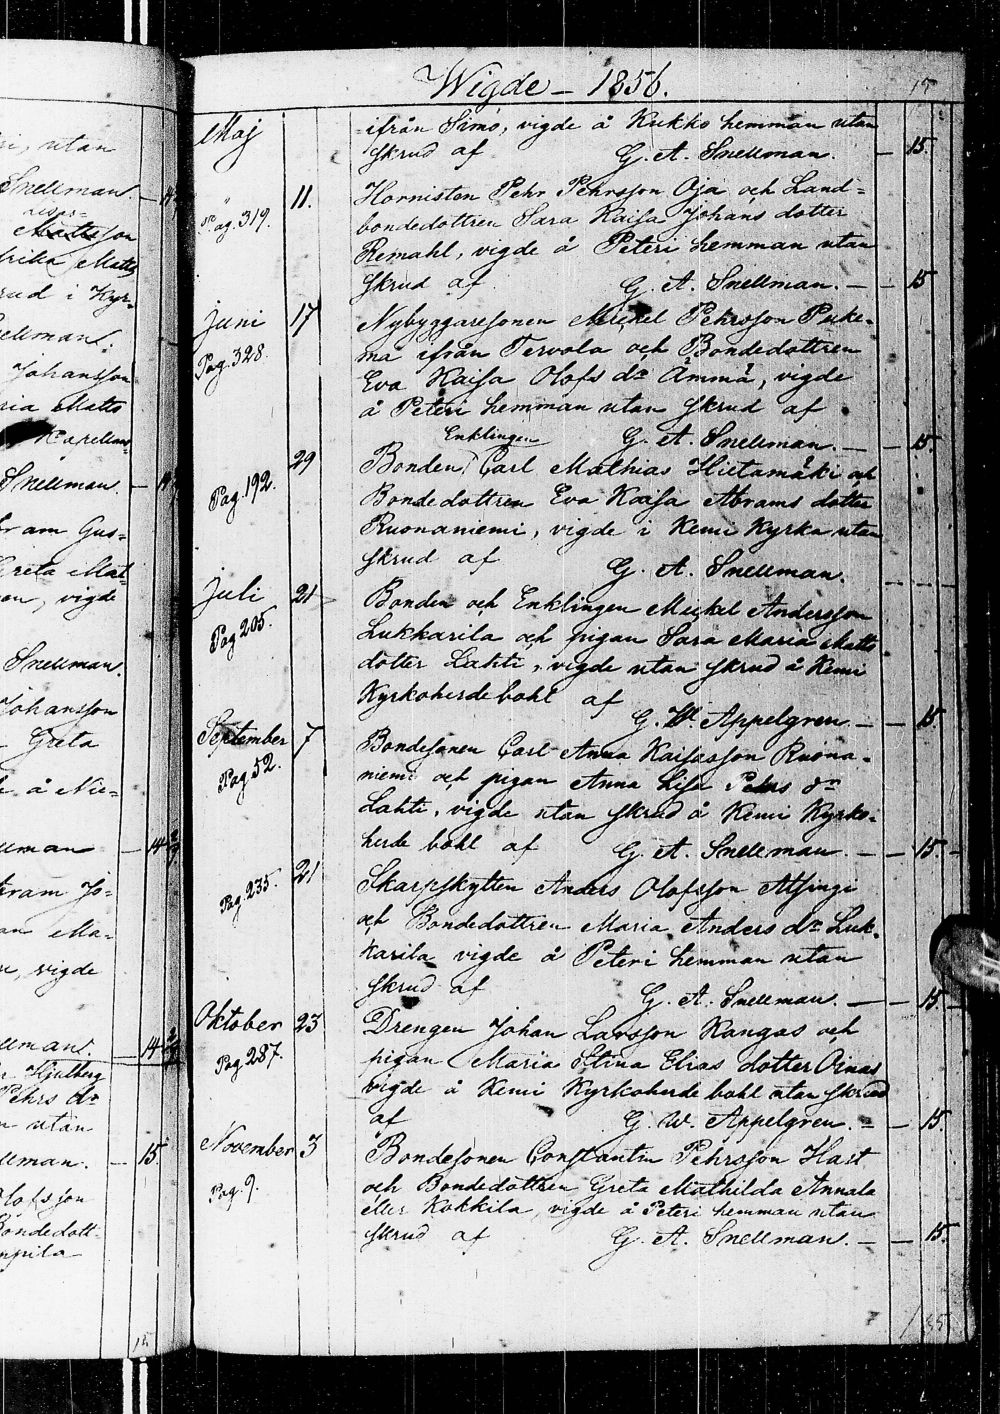 Wigde – 1856. 15
Maj ifrån Simo, vigde å Kukko hemman utan
skrud af G. A. Snellman. — 15.
" 11. Hornisten Pehr Pehrsson Oja och Land-
Pag. 319. bondedottren Sara Kaisa Johans dotter
Remahl, vigde å Peteri hemman utan
skrud af G. A. Snellman. — 15
Juni 17 Nybyggaresonen Michel Pehrsson Puke-
Pag. 328. ma ifrån Tervola och Bondedottren
Eva Kaisa Olofs dr Ämmä, vigde
å Peteri hemman utan skrud af
G. A. Snellman. — 15.
Enklingen
29 Bonden Carl Mathias Hietamäki och
Pag. 192. Bondedottren Eva Kaisa Abrams dotter
Ruonaniemi, vigde i Kemi Kyrka utan
skrud af G. A. Snellman.
Juli 21 Bonden och Enklingen Mickel Andersson
Pag 205. Lukkarila och pigan Sara Maria Matts
dotter Lahti, vigde utan skrud å Kemi
Kyrkoherde bohl af
G. W. Appelgren — 15
September 7 Bondesonen Carl Anna Kaisasson Ruona-
Pag 52. niemi och pigan Anna Lisa Pehrs dr
Lahti, vigde utan skrud å Kemi Kyrko-
herde bohl af G. A. Snellman. — 15.
21 Skarpskytten Anders Olofsson Alsingi
Pag. 235. och Bondedottren Maria Anders dr Luk-
karila vigde å Peteri hemman utan
skrud af G. A. Snellman. — 15
Oktober 23 Drengen Johan Larsson Kangas och
Pag 287. pigan Maria Stina Elias dotter Oinas
vigde å Kemi Kyrkoherde bohl utan skrud
af G. W. Appelgren. — 15.
November 3 Bondesonen Constantin Pehrsson Hast
Pag. 9. och Bondedottren Greta Mathilda Annala
eller Kokkila, vigde å Peteri hemman utan
skrud af G. A. Snellman. — 15.
utan
Snellman. — 14
Mattsson
Matts
rud i Kyr-
Johansson
ria Matts
Snellman. — 14
ram Gus-
Greta Mat-
en, vigde
Snellman.
Johansson
Greta
å Nie-
— 14
ram Jo-
an Ma-
vigde
— 14
Pehrs dr
utan
— 15
Olofsson
Bondedott-